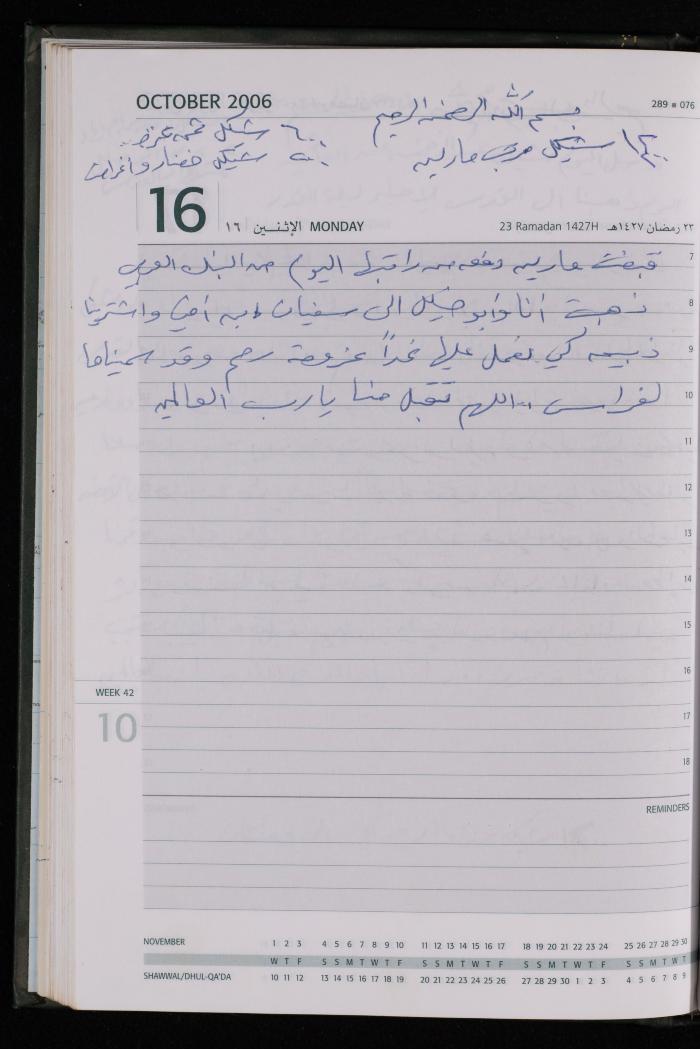 OCTOBER 2006
289 ■ 076
بسم الله الرحمن الرحيم
١٣٠٠ شيكل مارلين
٦٠٠ شيكل
شيكل خضار واغراض
16
١٦ الإثنـــين MONDAY
23 Ramadan 1427H ٢٣ رمضان ١٤٢٧هـ
قبضت مارلين دفعه من راتبها اليوم من البنك العربي
ذهبت أنا وأبو الى سفيان ابن أخي واشترينا
ذبيحه كي نعمل عليها غداً عزومة رحم وقد سميناها
لفراس .. اللهم تقبل منا يا رب العالمين
7
8
9
10
11
12
13
14
15
16
17
18
WEEK 42
10
REMINDERS
NOVEMBER 1 2 3 4 5 6 7 8 9 10 11 12 13 14 15 16 17 18 19 20 21 22 23 24 25 26 27 28 29 30
W T F S S M T W T F S S M T W T F S S M T W T F S S M T W T
SHAWWAL/DHUL-QA'DA 10 11 12 13 14 15 16 17 18 19 20 21 22 23 24 25 26 27 28 29 30 1 2 3 4 5 6 7 8 9